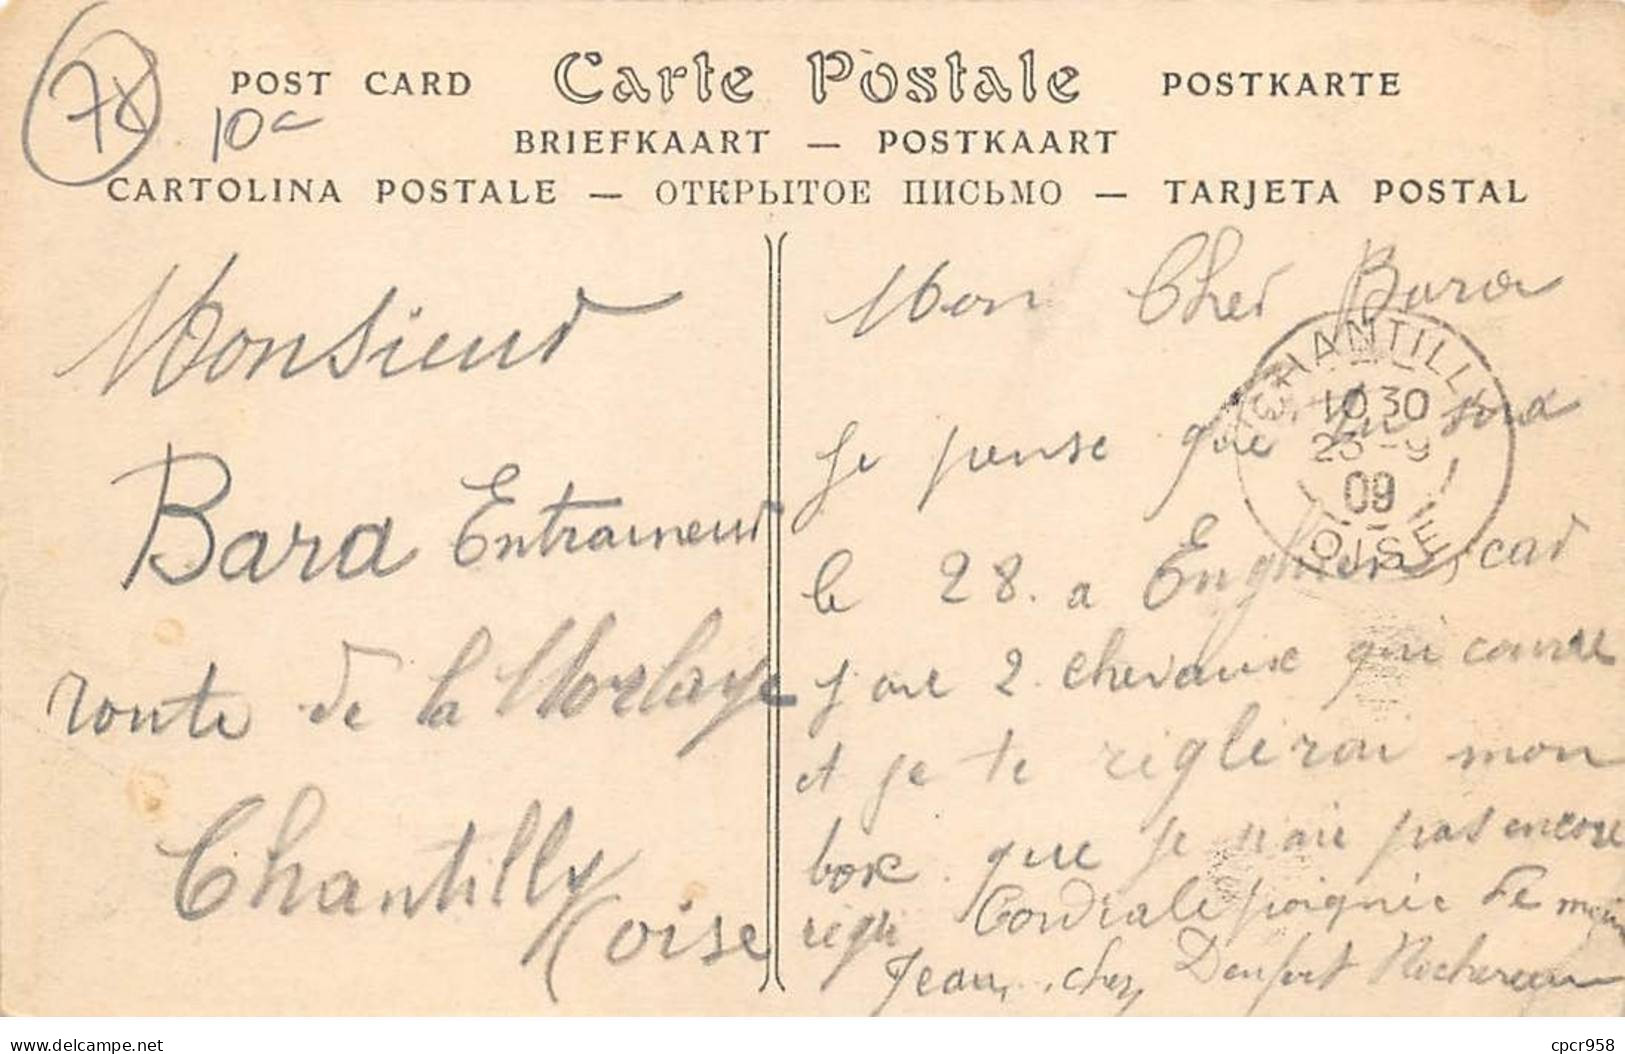 78
10c
POST CARD Carte Postale POSTKARTE
BRIEFKAART — POSTKAART
CARTOLINA POSTALE — ОТКРЫТОЕ ПИСЬМО — TARJETA POSTAL
Monsieur
Bara Entraineur
route de la Morlaye
Chantilly
(oise
Mon Cher Bara
Je pense que tu sera
le 28. a Enghien, car
j'ai 2 chevaux qui coure
et je te riglerai mon
box que je n'ai pas encore
rigli Cordiale poignie de main
Jean, chez Denfert Rochereau
CHANTILLY
10 30
23 -9
09
OISE
www.delcampe.net
cpcr958